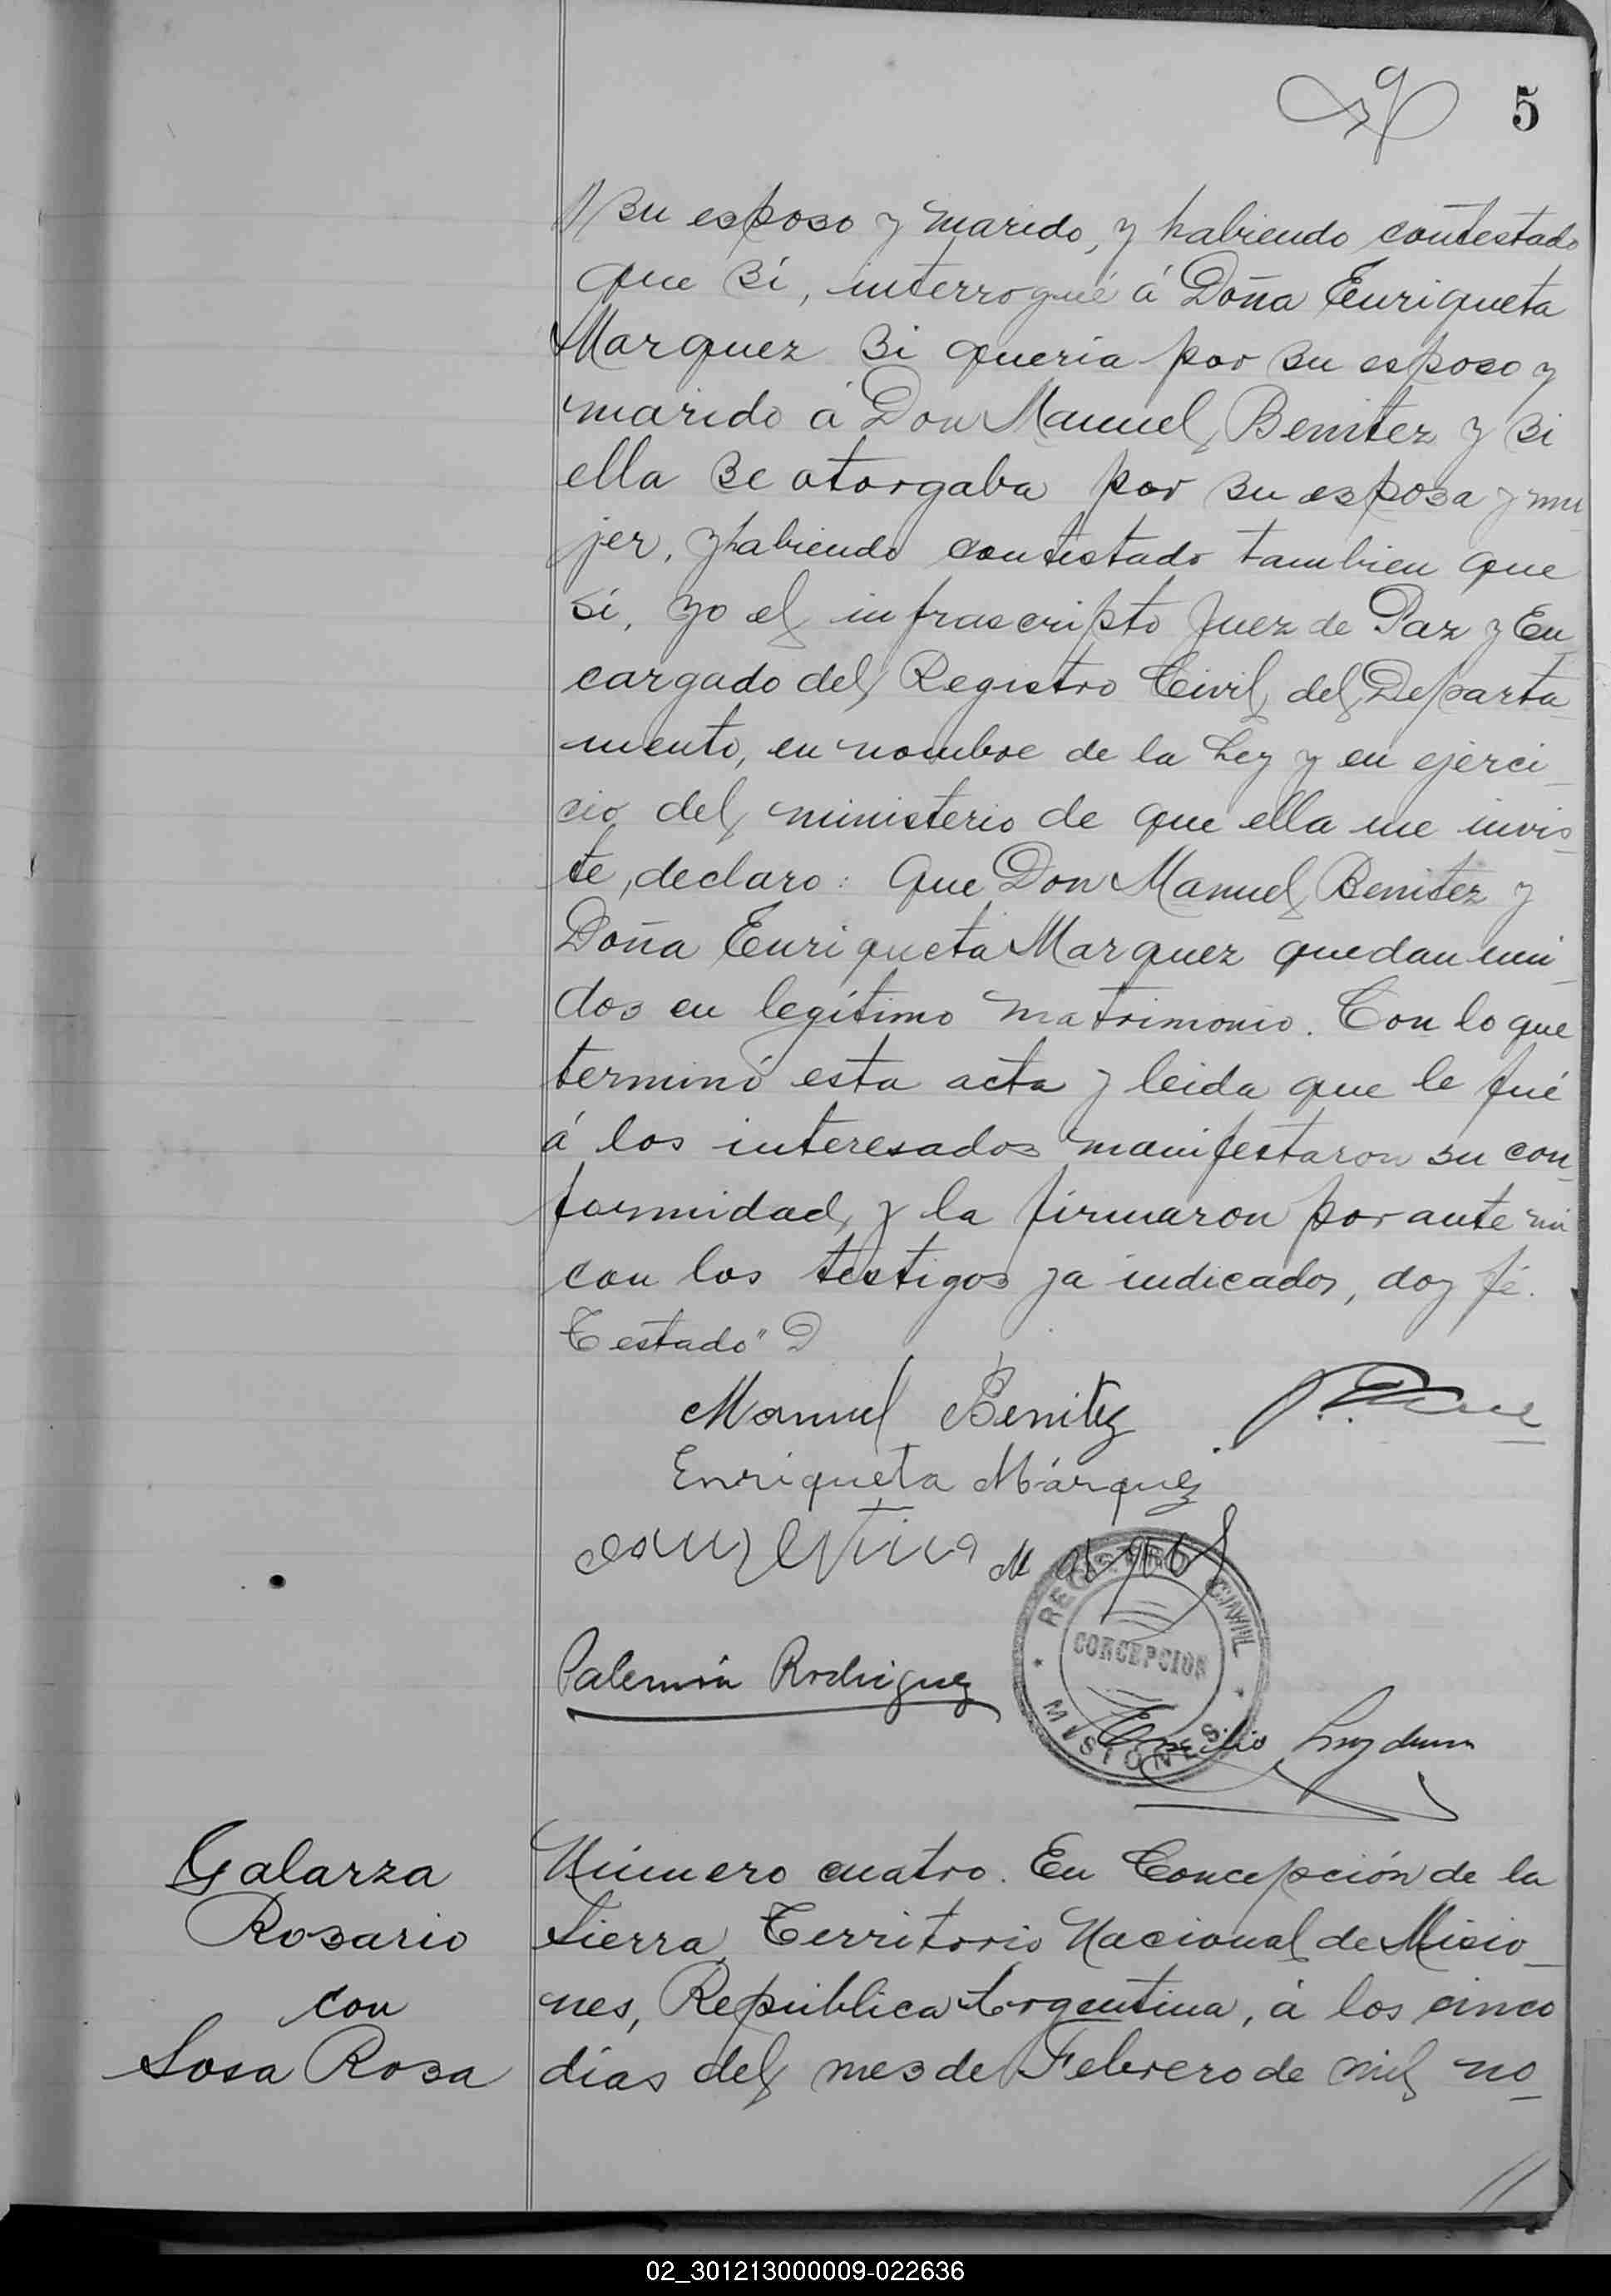 5
su esposo y marido, y habiendo contestado
que si, interrogué á Doña Enriqueta
Marquez si queria por su esposo y
marido á Don Manuel Benitez y si
ella se otorgaba por su esposa y mu
jer, y habiendo contestado tambien que
si, yo el infrascripto Juez de Paz y En
cargado del Registro Civil del Departa
mento, en nombre de la Ley y en ejerci
cio del ministerio de que ella me invis
te, declaro: Que Don Manuel Benitez y
Doña Enriqueta Marquez quedan uni
dos en legítimo matrimonio. Con lo que
terminó esta acta y leida que le fué
á los interesados manifestaron su con
formidad, y la firmaron por ante mi
con los testigos ya indicados, doy fé.
Testado" D
Manuel Benitez
Enriqueta Márquez
REGISTRO CIVIL
CONCEPCION
MISIONES
Palemón Rodriguez
Emilio
Galarza
Rosario
con
Sosa Rosa
Número cuatro. En Concepción de la
Sierra, Territorio Nacional de Misio
nes, República Argentina, á los cinco
dias del mes de Febrero de mil no
02_301213000009-022636